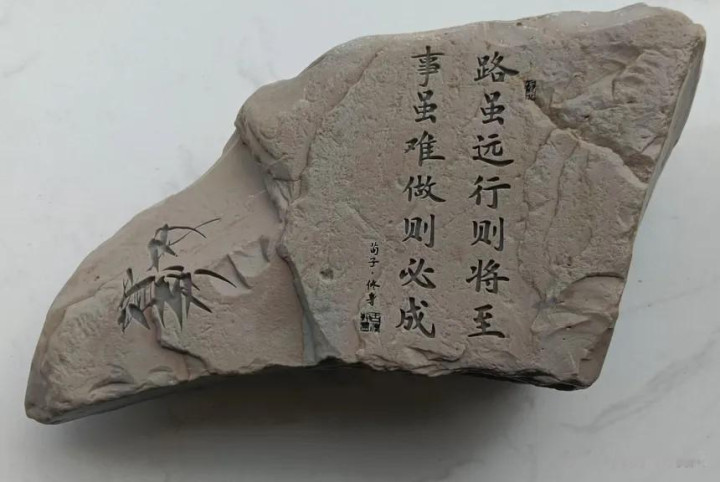 路虽远行则将至
事虽难做则必成
荀子·休身